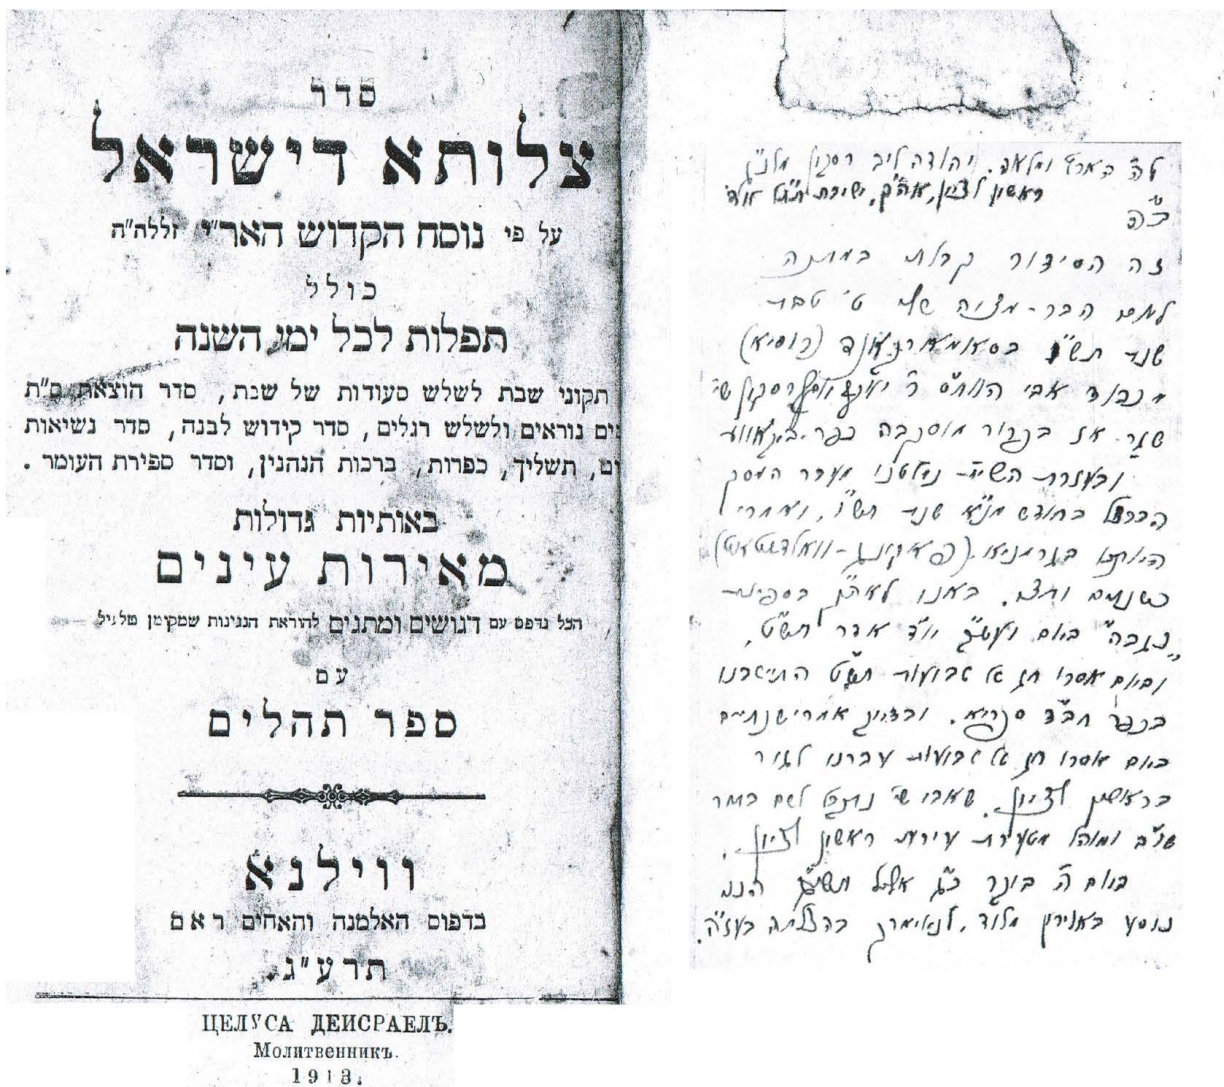 סדר
צלותא דישראל
על פי נוסח הקדוש האר"י זללה"ה
כולל
תפלות לכל ימי השנה
תקוני שבת לשלש סעודות של שבת, סדר הוצאת ס"ת
ים נוראים ולשלש רגלים, סדר קידוש לבנה, סדר נשיאות
ים, תשליך, כפרות, ברכות הנהנין, וסדר ספירת העומר.
באותיות גדולות
מאירות עינים
הכל נדפס עם דגושים ומתגים להוראת הנגינות שמקומן מלעיל
עם
ספר תהלים
ווילנא
בדפוס האלמנה והאחים ראם
תרע"ג
ЦЕЛУСА ДЕИСРАЕЛЪ.
Молитвенникъ.
1913.
לה' הארץ ומלאה. יהודה ליב רסקין
ראשון לציון, אה"ק, ישיבת
ב"ה
זה הסידור קבלתי במתנה
ליום הבר-מצוה שלי ט' טבת
שנת בסאמארקאנד (רוסיא)
מכבוד אבי ר' רסקין שי'
שגר אז בכפר
ובעזרת השי"ת נמלטנו מעבר המסך
הברזל בחודש שנת תש"ו, ואחרי
היותנו בגרמניא (פאקינג-וואלדשטאט)
כשנתים וחצי, באנו לאה"ק בספינת
"נגבה" ביום יו"ד אדר תש"ט,
וביום אסרו חג של שבועות תש"ט התישבנו
בכפר חב"ד ספריא. ובדיוק אחרי שנתיים
ביום אסרו חג של שבועות עברנו לגור
בראשון לציון, שאבי שי' נתקבל לשם בתור
שו"ב ומוהל מטעם עירית ראשון לציון.
ביום ה' בוקר כ"ג אלול הנני
נוסע באוירון מלוד, לניאיורק בהצלחה בעז"ה.